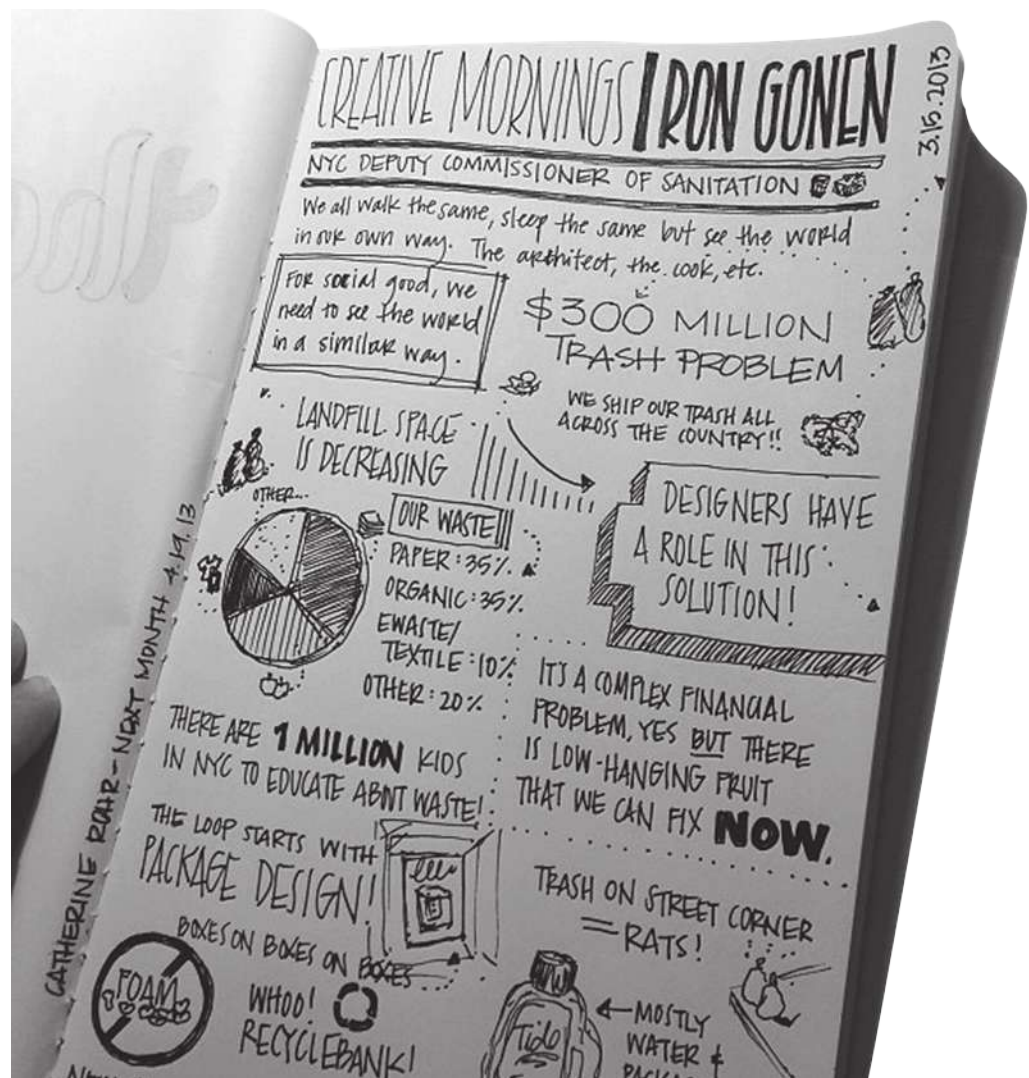 CREATIVE MORNINGS / RON GONEN
3.15.2013
NYC DEPUTY COMMISSIONER OF SANITATION
We all walk the same, sleep the same but see the world
in our own way. The architect, the cook, etc.
FOR social good, we
need to see the world
in a similar way.
$300 MILLION
TRASH PROBLEM
WE SHIP OUR TRASH ALL
ACROSS THE COUNTRY!!
LANDFILL SPACE
IS DECREASING
DESIGNERS HAVE
A ROLE IN THIS
SOLUTION!
OTHER...
OUR WASTE
PAPER: 35%
ORGANIC: 35%
EWASTE/
TEXTILE: 10%
OTHER: 20%
IT'S A COMPLEX FINANCIAL
PROBLEM, YES BUT THERE
IS LOW-HANGING FRUIT
THAT WE CAN FIX NOW.
THERE ARE 1 MILLION KIDS
IN NYC TO EDUCATE ABOUT WASTE!
THE LOOP STARTS WITH
PACKAGE DESIGN!
BOXES ON BOXES ON BOXES
TRASH ON STREET CORNER
= RATS!
FOAM
WHOO!
RECYCLEBANK!
Tide
MOSTLY
WATER &
CATHERINE ROHR - NEXT MONTH 4.19.13